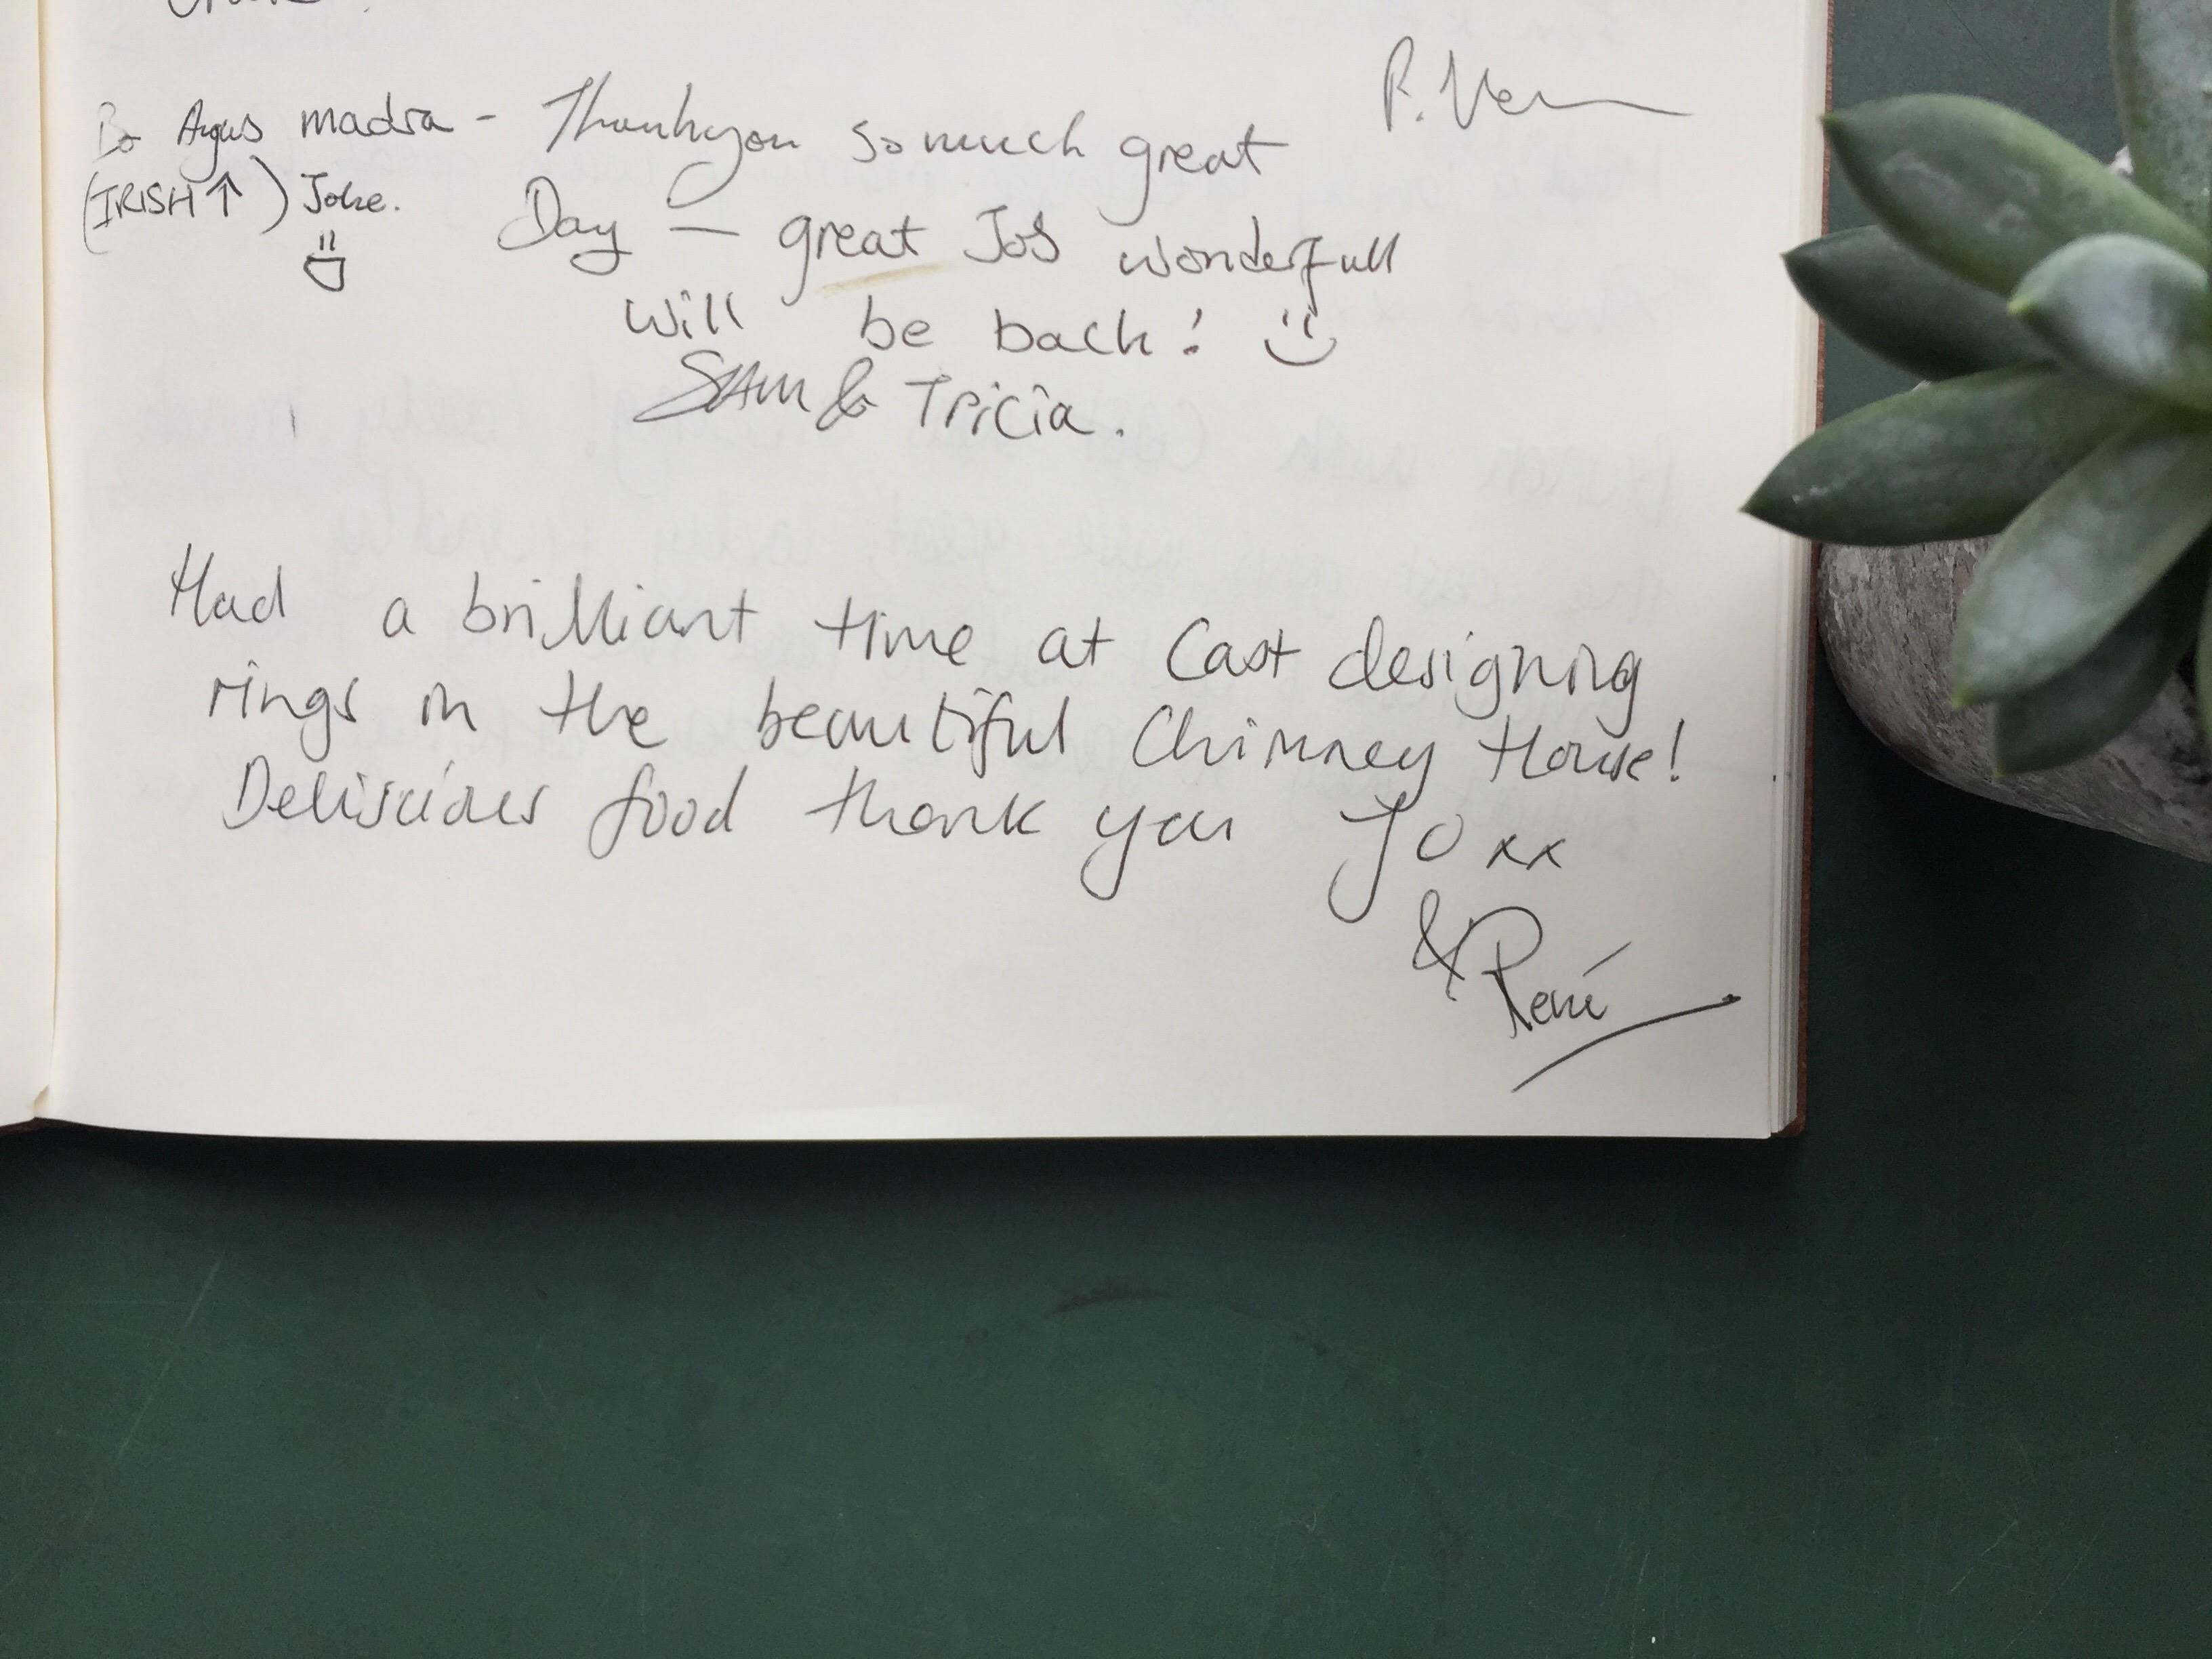 R. Ve
Bo Agus madra - Thankyou so much great
(IRISH ↑) Joke.
Day — great Job wonderfull
will be back! :)
SAM & Tricia.
Had a brilliant time at Cast designing
rings in the beautiful Chimney House!
Deliscious food thank you Jo xx
& René